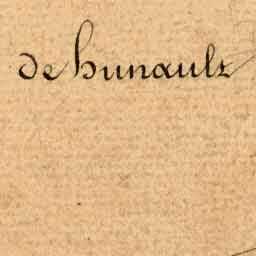 de hunaulz